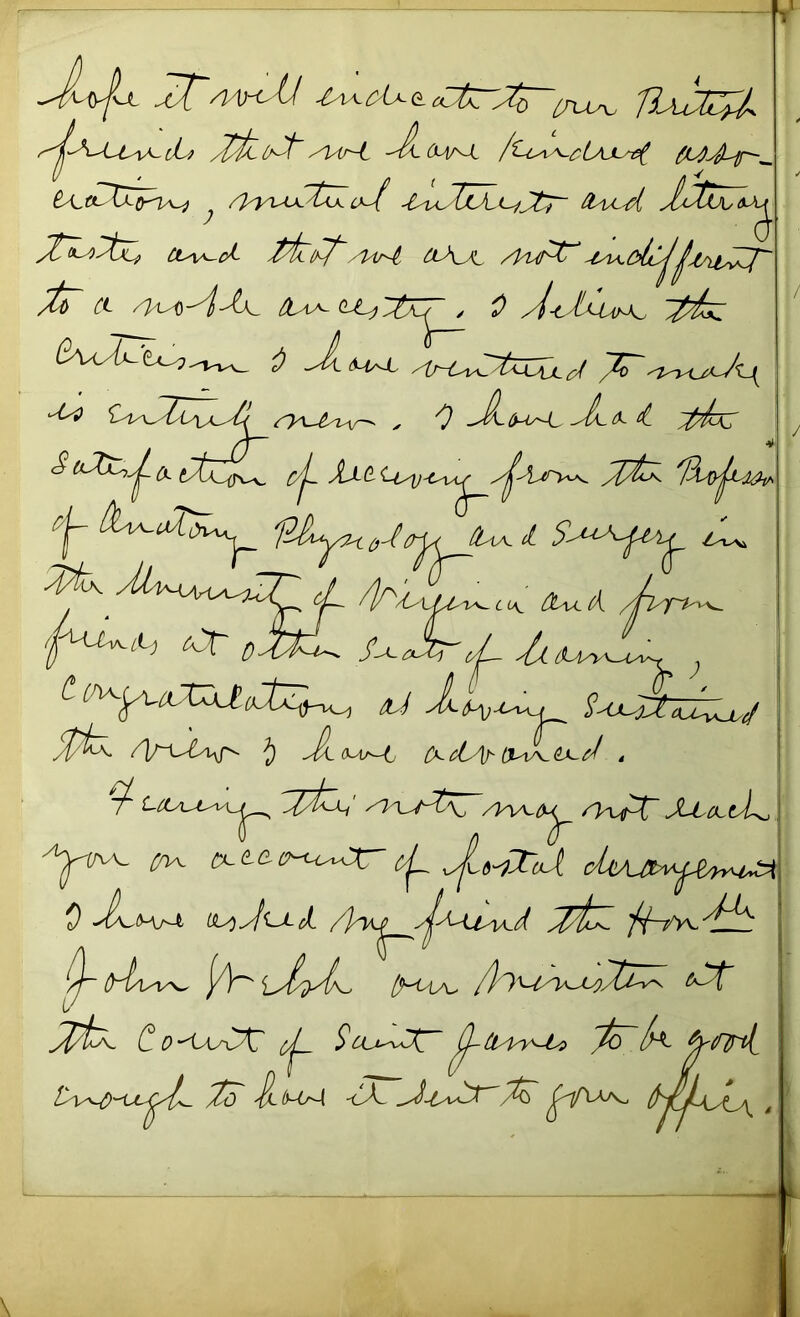 hope it will indicate to our British
friends that we have kindred asso-
ciations, mutual interests and literary
tastes and that we are not indifferent
to a noble ancestry. I believe the
Criticism I have ventured to make
is entirely new. I have had the
Satisfaction of receiving from the Professor
of Anatomy Physiology and Surgery in
the University of Virginia and from
friends at other Seats of learning,
Congratulations as having Sustained
the view I have advanced.
Fearing this note may not reach
you on account of postal derangement
I have asked my friend the Honble
John Welsh our Minister at
the Court of Saint James to be good
enough to have it sent to your office.